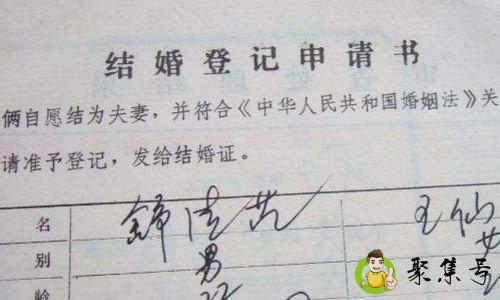 结婚登记申请书
俩自愿结为夫妻，并符合《中华人民共和国婚姻法》关
请准予登记，发给结婚证。
名 王仙
别 男 女
龄 22
聚集号